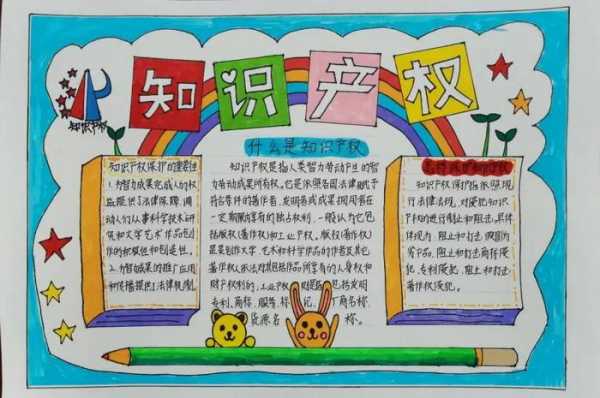 知识产权
知识产权
知识产权保护的重要性
1.为智力成果完成人的权
益提供了法律保障,调
动人们从事科学技术研
究和文学艺术作品创
作的积极性和创造性。
2.为智力成果的推广应用
和传播提供了法律机制
什么是知识产权
知识产权是指人类智力劳动产生的智
力劳动成果所有权。它是依照各国法律赋予
符合条件的著作者、发明者或成果拥有者在
一定期限内享有的独占权利,一般认为它包
括版权(著作权)和工业产权。版权(著作权)
是指创作文学、艺术和科学作品的作者及其他
著作权人依法对其作品所享有的人身权和
财产权利的,工业产权 包括发明
专利、商标、服务标记、厂商名称
货源名称。
知识产权
知识产权保护指依照现
行法律法规,对侵犯知识
产权的进行制止和阻止,具体
体现为,阻止和打击假冒伪
劣产品,阻止和打击商标侵
犯,专利侵犯,阻止和打击
著作权侵犯。